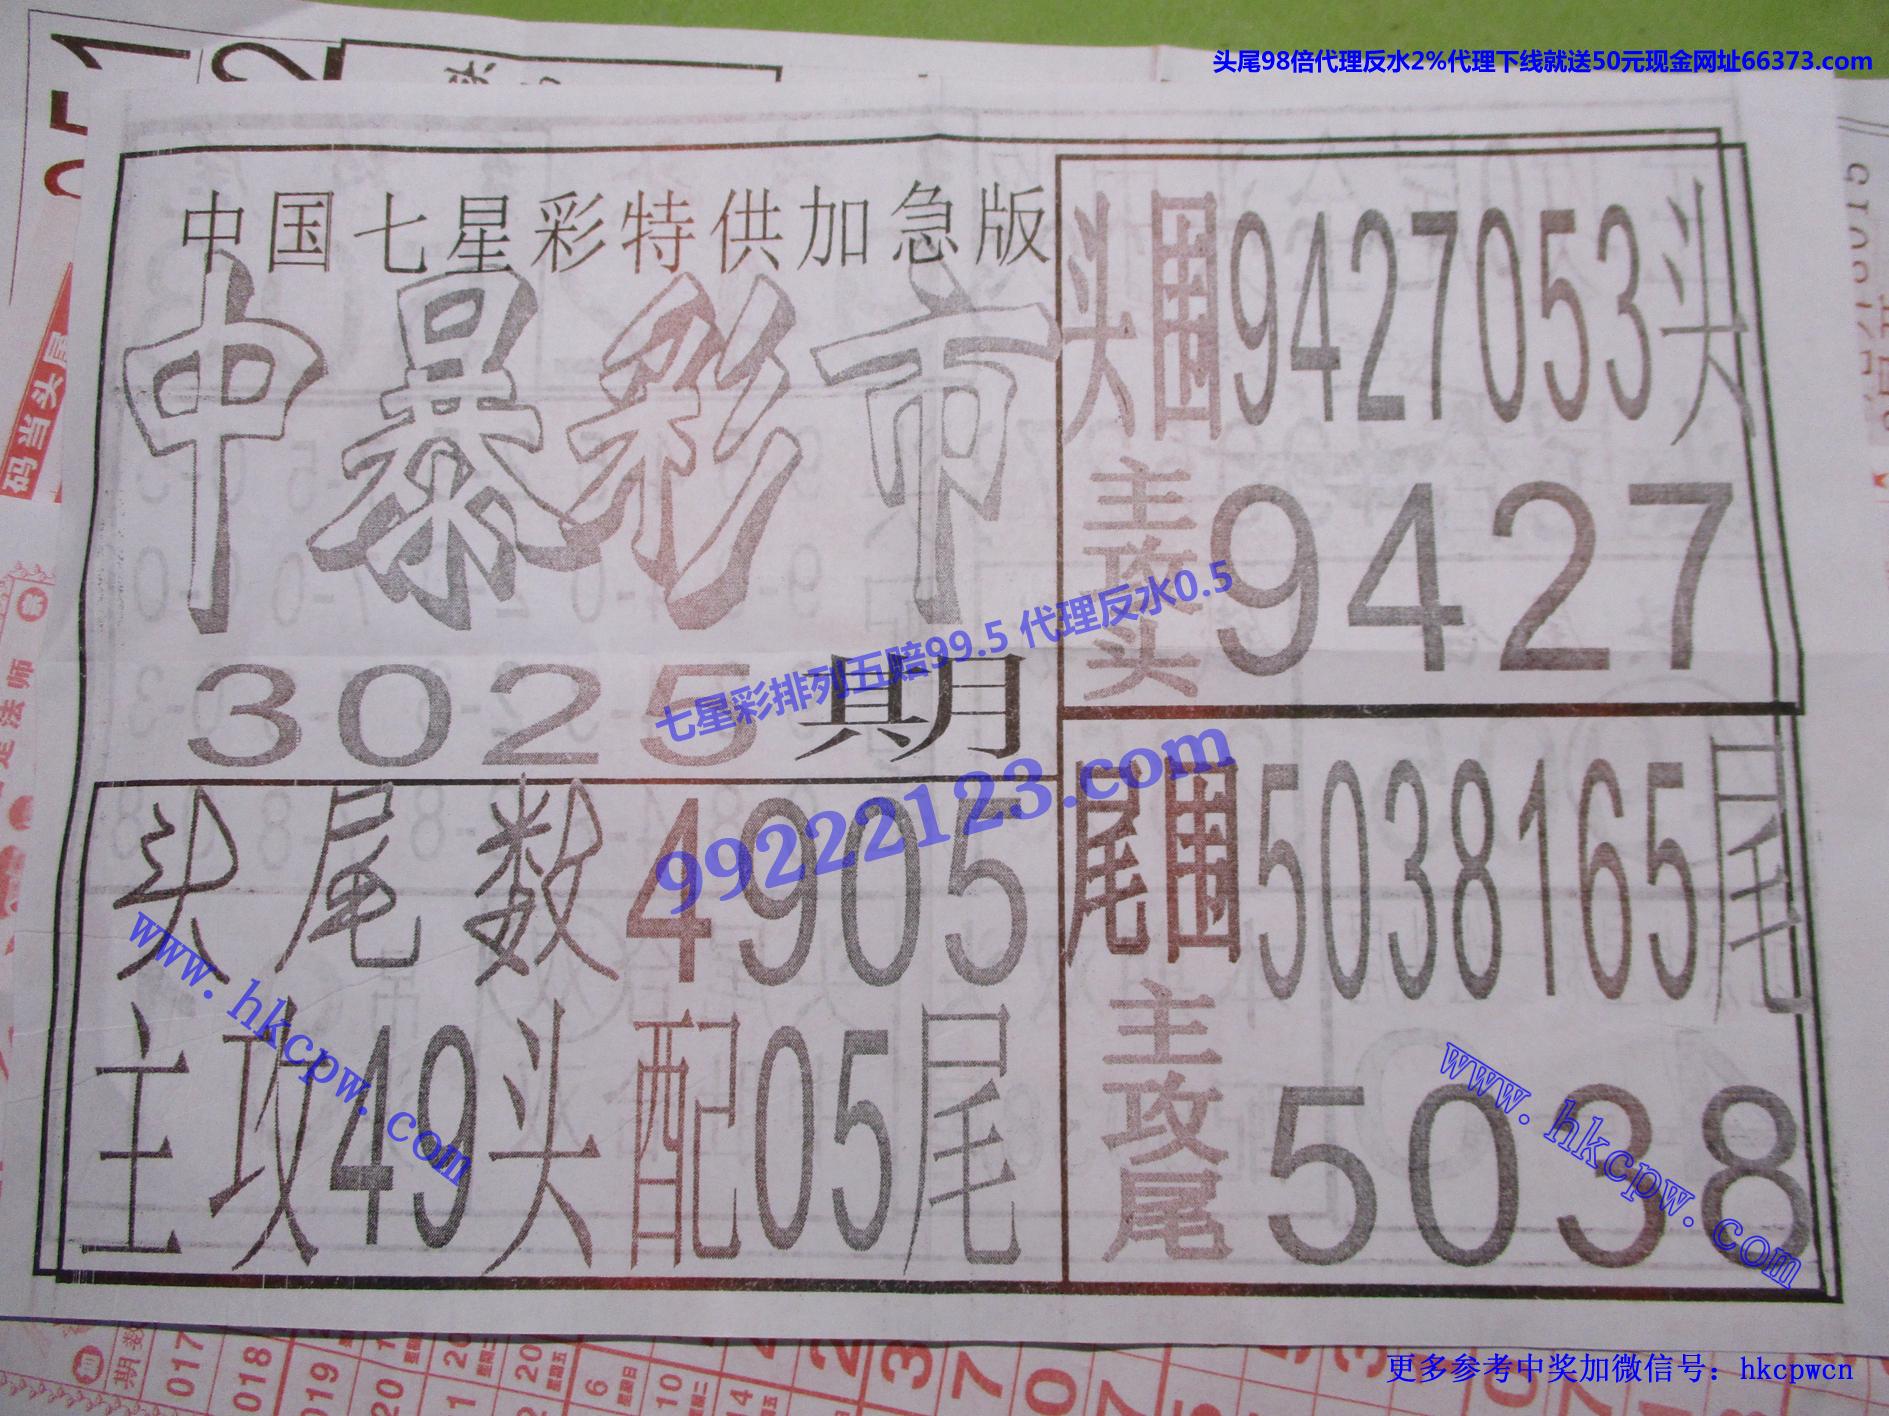 头尾98倍代理反水2%代理下线就送50元现金网址66373.com
中国七星彩特供加急版
中暴彩市
3025期
头围9427053头
主攻头9427
七星彩排列五赔99.5 代理反水0.5
99222123.com
头尾数4905
主攻49头配05尾
尾围5038165尾
主攻尾5038
www.hkcpw.com
www.hkcpw.com
码当头尾
期数
017
018
019
更多参考中奖加微信号：hkcpwcn